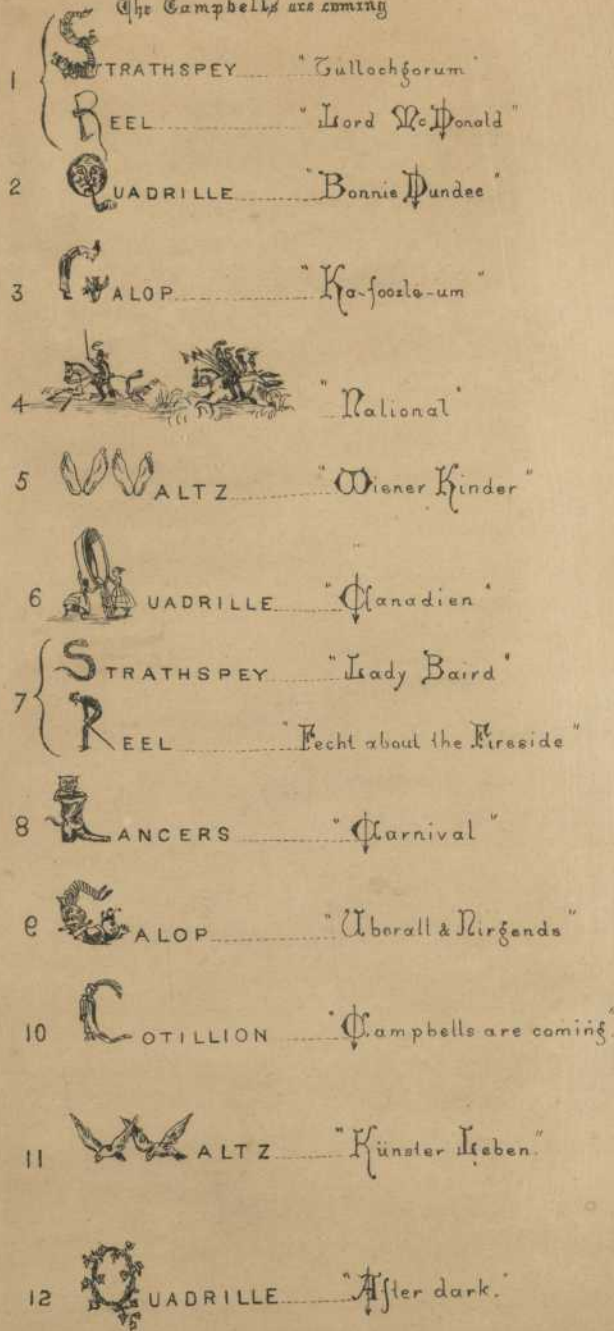 The Campbells are coming
1 STRATHSPEY "Tullochgorum"
REEL "Lord McDonald"
2 QUADRILLE "Bonnie Dundee"
3 GALOP "Ka-foozle-um"
4 "National"
5 WALTZ "Wiener Kinder"
6 QUADRILLE "Canadien"
7 STRATHSPEY "Lady Baird"
REEL "Fecht about the Fireside"
8 LANCERS "Carnival"
9 GALOP "Uberall & Nirgends"
10 COTILLION "Campbells are coming"
11 WALTZ "Künster Leben."
12 QUADRILLE "After dark."